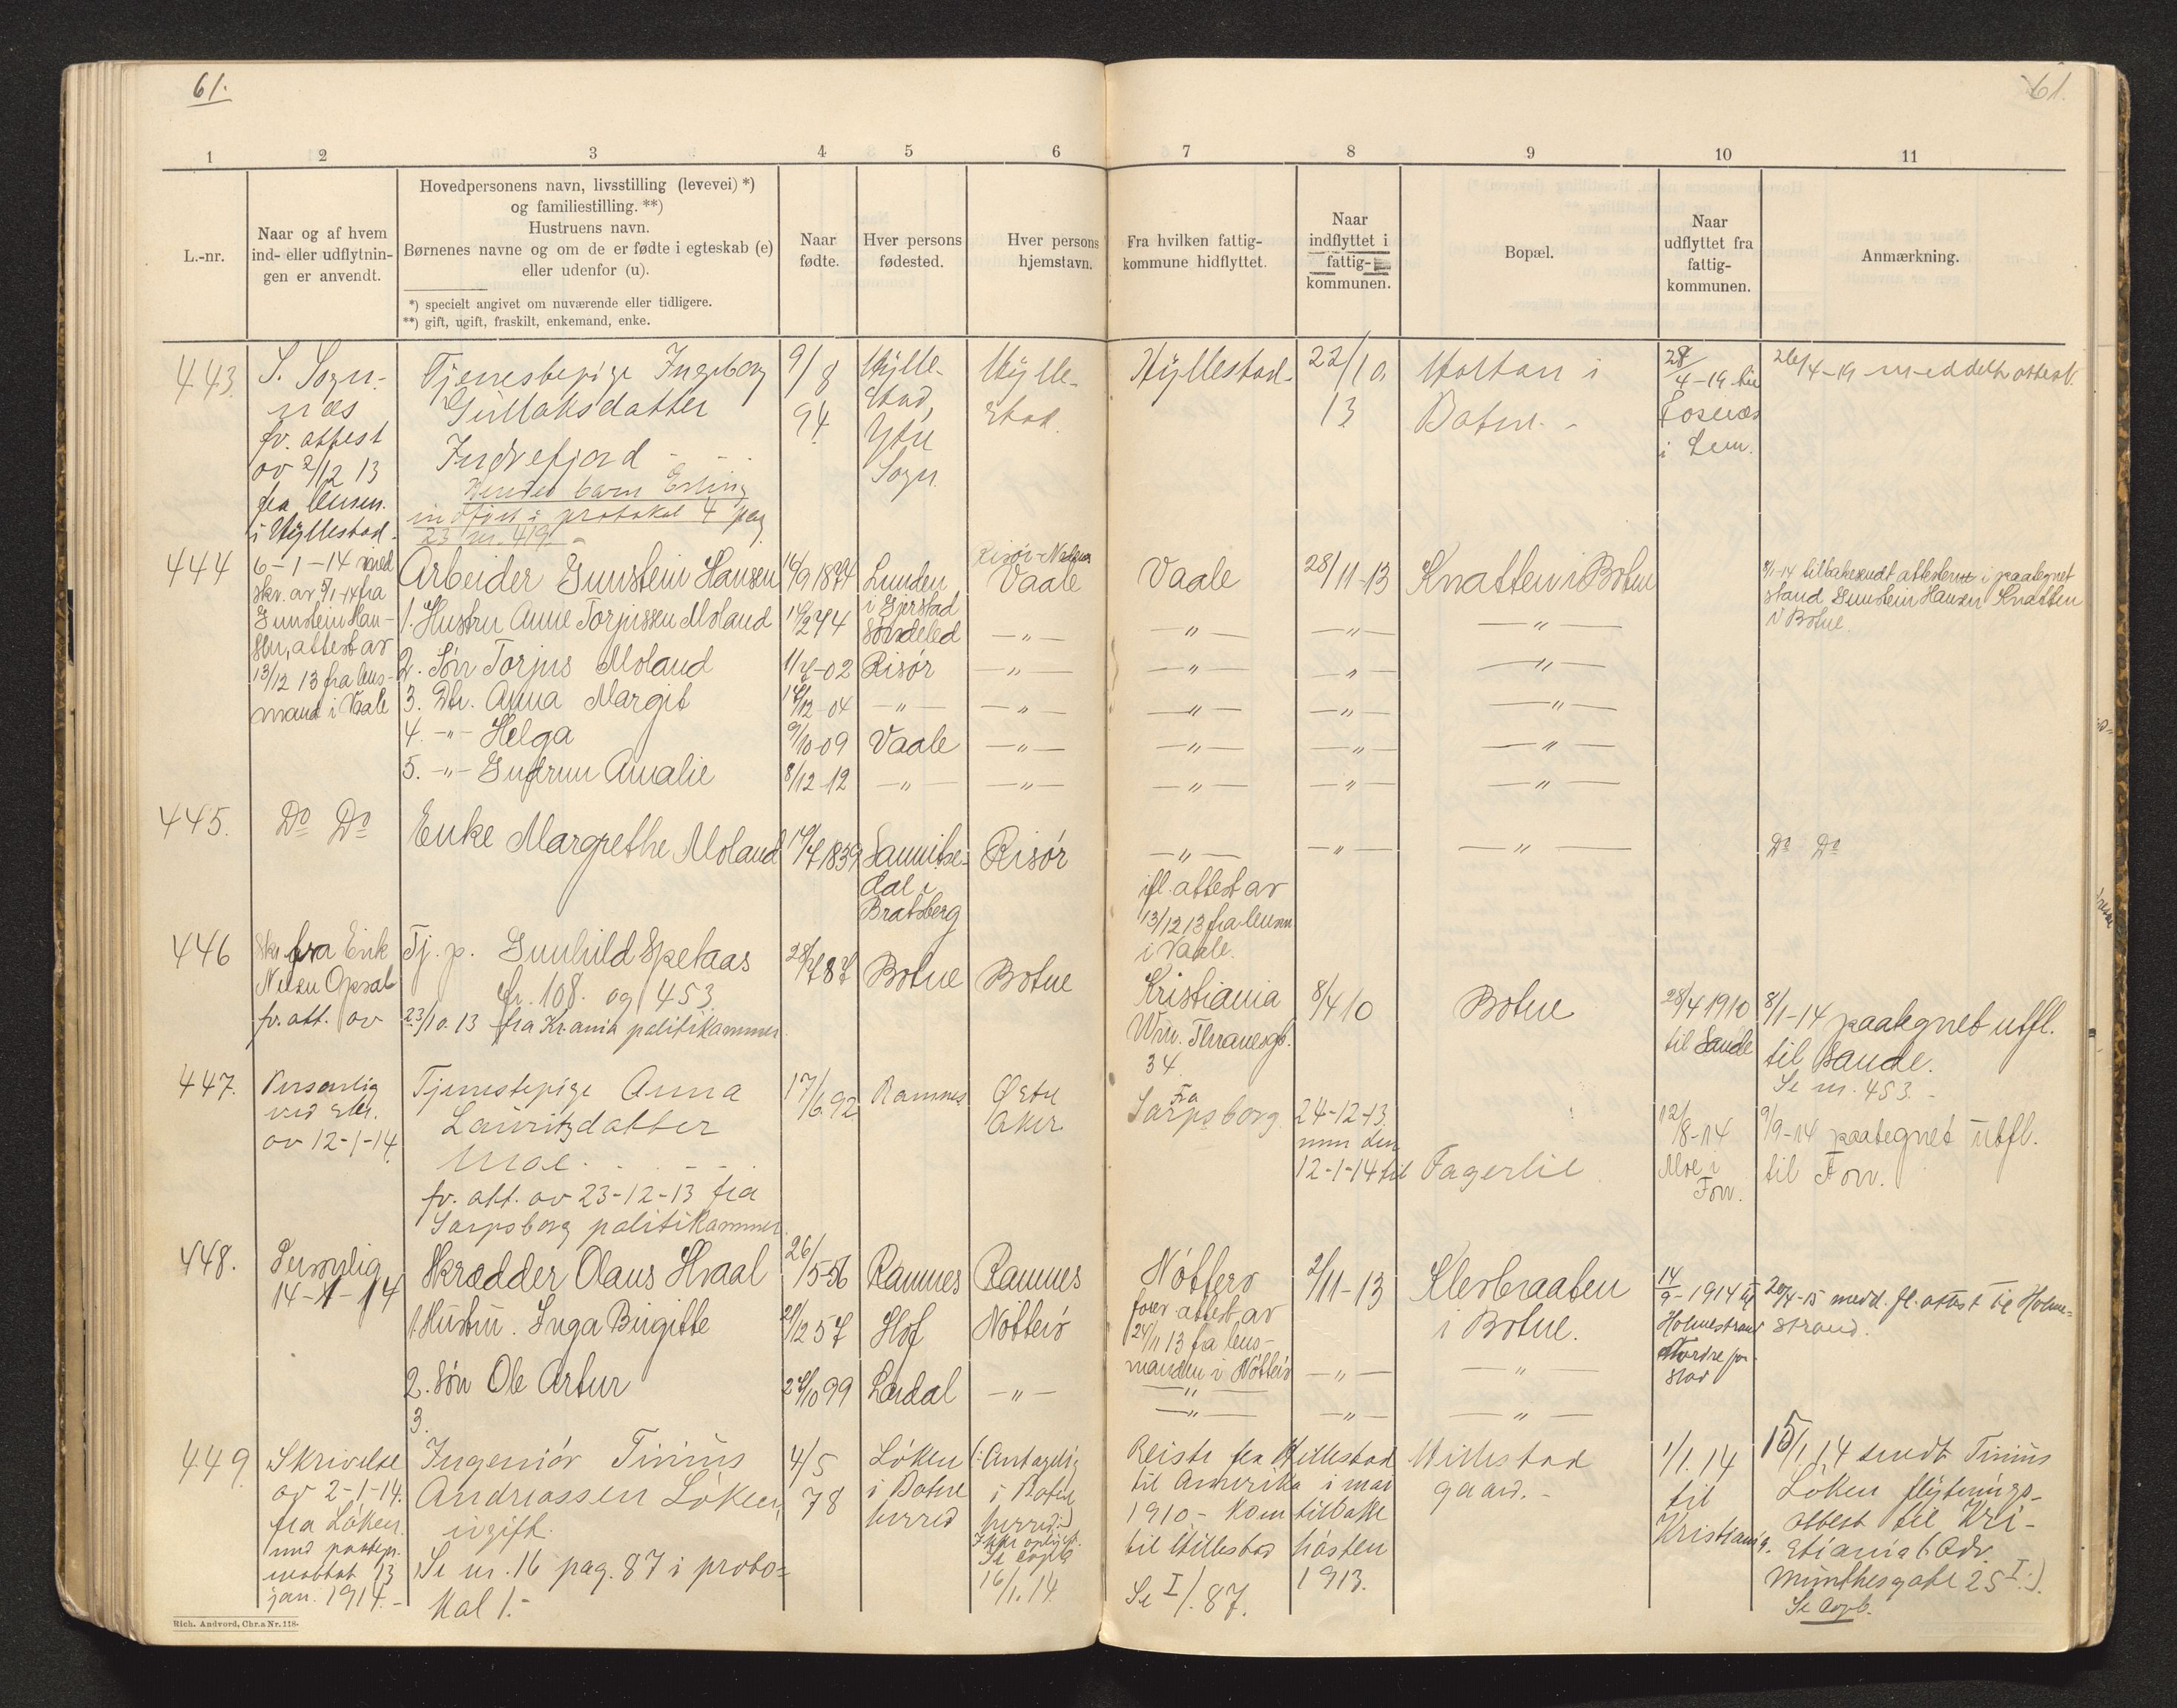 61.
61.
1 2 3 4 5 6 7 8 9 10 11
L.-nr.
Naar og af hvem
ind- eller udflytnin-
gen er anvendt.
Hovedpersonens navn, livsstilling (levevei) *)
og familiestilling. **)
Hustruens navn.
Børnenes navne og om de er fødte i egteskab (e)
eller udenfor (u).
*) specielt angivet om nuværende eller tidligere.
**) gift, ugift, fraskilt, enkemand, enke.
Naar
fødte.
Hver persons
fødested.
Hver persons
hjemstavn.
Fra hvilken fattig-
kommune hidflyttet.
Naar
indflyttet i
fattig-
kommunen.
Bopæl.
Naar
udflyttet fra
fattig-
kommunen.
Anmærkning.
443.
S. Sogn-
næs
fv. attest
av 2/12 13
fra lensm.
i Hyllestad.
Tjenestepige Ingeborg
Gullaksdatter
Indrefjord - - -
Hendes barn Erling
indført i protokol 4 pag
23 nr. 419. -
9/8
94.
Hylle-
stad,
Ytre
Sogn.
Hylle-
stad.
Hyllestad.
22/10.
13
Holtan i
Botne. -
28/4-19 til
i Lem.
26/4-19 meddelt attest.
444
6-1-14 med
skr. av 5/1-14 fra
Gunstein Han-
sen, attest av
13/12 13 fra lens-
mand i Vaale
Arbeider Gunstein Hansen
1. Hustru Anne Torjussen Moland
2. Søn Torjus Moland
3. Dtr. Anna Margit
4. -"- Helga
5. -"- Gudrun Amalie
14/9 1874
14/2 74
11/7-02
14/12-04
9/10-09
8/12-12
Lunden
i Gjerstad
Søndeled
Risør
-"-
Vaale
-"-
Vaale
-"-
-"-
-"-
-"-
-"-
Vaale
-"-
-"-
-"-
-"-
-"-
28/11-13
-"-
-"-
-"-
-"-
-"-
Knatten i Botne
-"-
-"-
-"-
-"-
-"-
8/1-14 tilbakesendt attesten i paategnet
stand Gunstein Hansen Knatten
i Botne.
445.
Do Do
Enke Margrethe Moland
14/7 1839
Sannike-
dal i
Bratsberg
Risør
-"-
ifl. attest av
13/12 13 fra lensm
i Vaale.
-"-
-"-
Do Do
446
Skr. fra Erik
Nilsen Opsal
fv. att. av
Tj. p. Gunhild Spetaas
fr. 108. og 453.
23/10.13 fra Kr.ania politikammer.
28/7 87
Botne
Botne
Kristiania
Wm. Thranesgt.
34.
8/4 10
Botne
28/4 1910
til Sande
8/1-14 paategnet utfl.
til Sande.
Se nr. 453. -
447.
Personlig
ved
av 12-1-14.
Tjenestepige Anna
Lauritzdatter
Moe. - - - -
fv. att. av 23-12-13 fra
Sarpsborg politikammer.
17/6.92
Ramnes
Østre
Aker
Fra
Sarpsborg.
24-12-13.
men den
12-1-14 til
Fagerlie
12/8-14
Moe i
Fon.
9/9-14 paategnet utfl.
til Fon.
448.
Personlig
14-1-14
Skrædder Olaus Hvaal
1. Hustru. Inga Birgitte
2. Søn Ole Artur
3.
26/5-56
21/12 57
24/10 99
Ramnes
Hof
Lardal
Ramnes
Nøtterø
-"-
Nøtterø
forev. attest av
24/11 13 fra lens-
manden i Nøtterø
-"-
-"-
2/11-13
-"-
-"-
Klevbraaten
i Botne.
-"-
-"-
14/9-1914 til
Holmestrand
Nordre
20/4-15 medd. fl. attest til Holme-
strand.
449.
Skrivelse
av 2-1-14.
fra Løken.
med postepr.
mottat 13
jan. 1914.-
Ingeniør Tinius
Andreassen Løken,
ugift.
Se nr. 16 pag. 87 i proto-
kol 1.-
4/5
78
Løken
i Botne
herred
(: Antagelig
i Botne
herred:)
Ikke oplyst.
Se copb
16/1.14.
Reiste fra Hillestad
til Amerika i mai
1910.- kom tilbake
til Hillestad høsten
1913.
Se I/.87.
Hillestad
gaard. -
1/1.14
til
Kristiania.
15/1.14 sendt Tinius
Løken flytnings-
attest til Kri-
stiania (: Adr.
Munthesgate 25 I :).
Se copb.
Rich. Andvord, Chr.a Nr. 118.